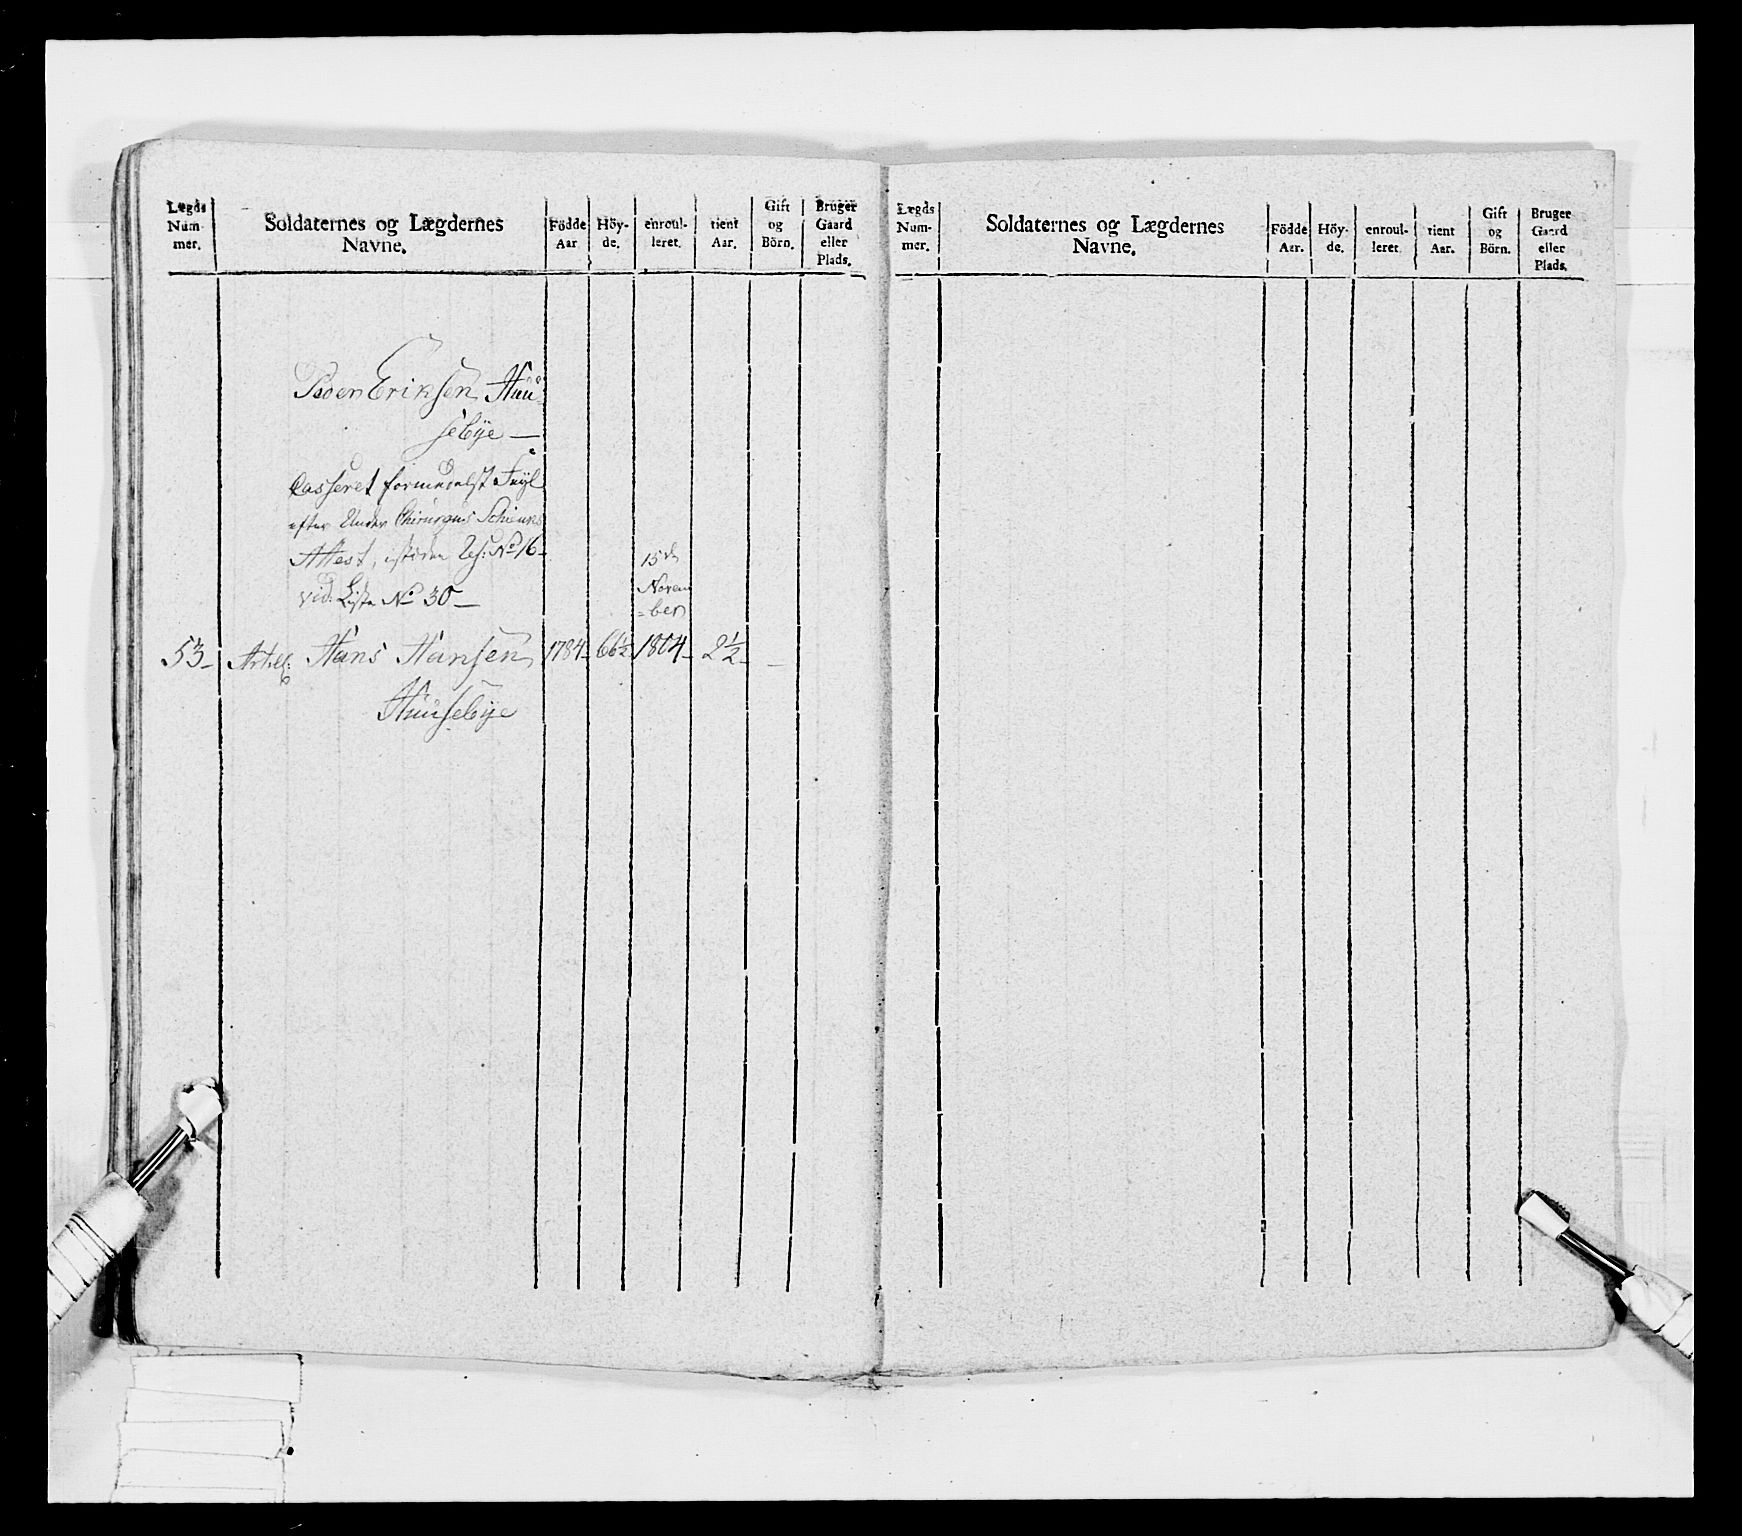 Lægds Num- mer.
Soldaternes og Lægdernes Navne.
Födde Aar
Höy- de.
enroul- leret.
tient Aar.
Gift og Börn.
Bruger Gaard eller Plads.
Eriksen Huu-
sebye —
Casseret formedelst Feyl
efter Under Chirurgus
Attest, No 16-
vid. Liste No 30 —
15de
Novem
=ber
53- Artill: Hans Hansen 1784- 66½ 1804- 2½- -
Huusebye
Lægds Num- mer.
Soldaternes og Lægdernes Navne.
Födde Aar.
Höy- de.
enroul- leret.
tient Aar.
Gift og Börn.
Bruger Gaard eller Plads.